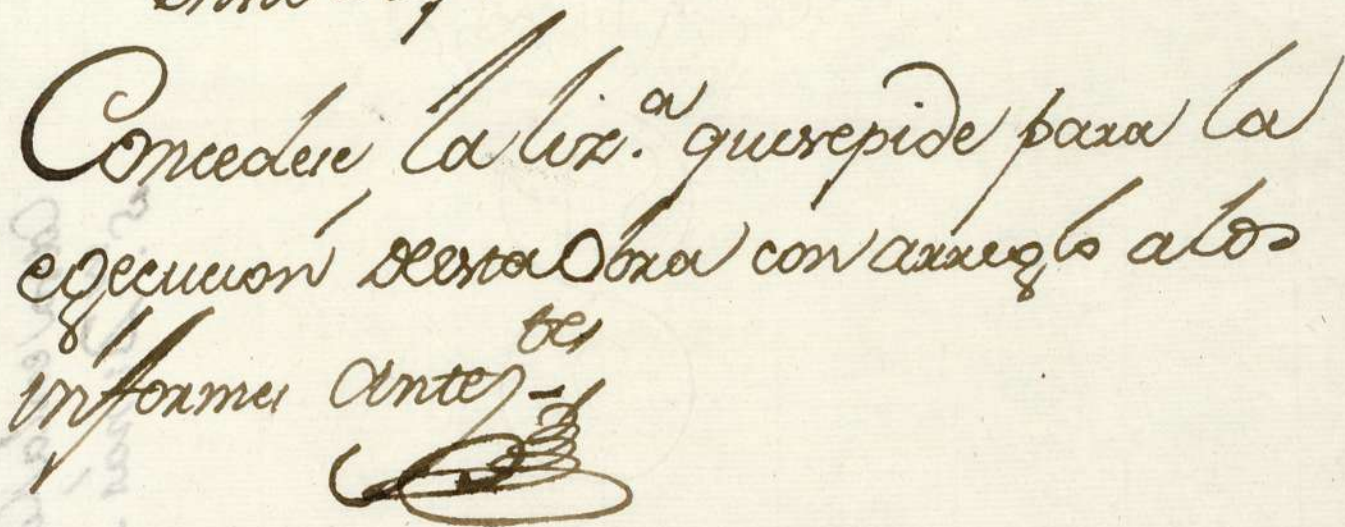 Concedese la liz.ª que se pide para la
egecucion de esta Obra con arreglo a los
informes antez.tes